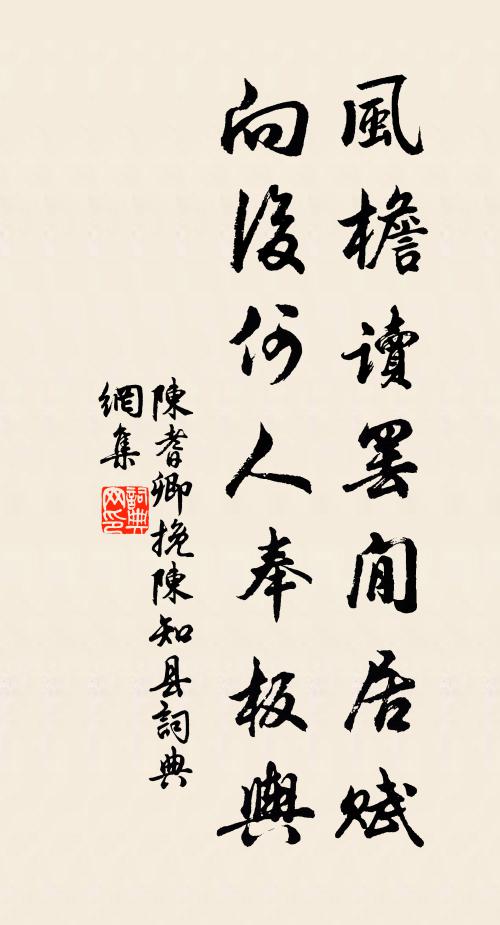 風檐讀罢閒居賦
向後何人奉板輿
陳耆卿挽陳知县詞典
網集
詞典網印